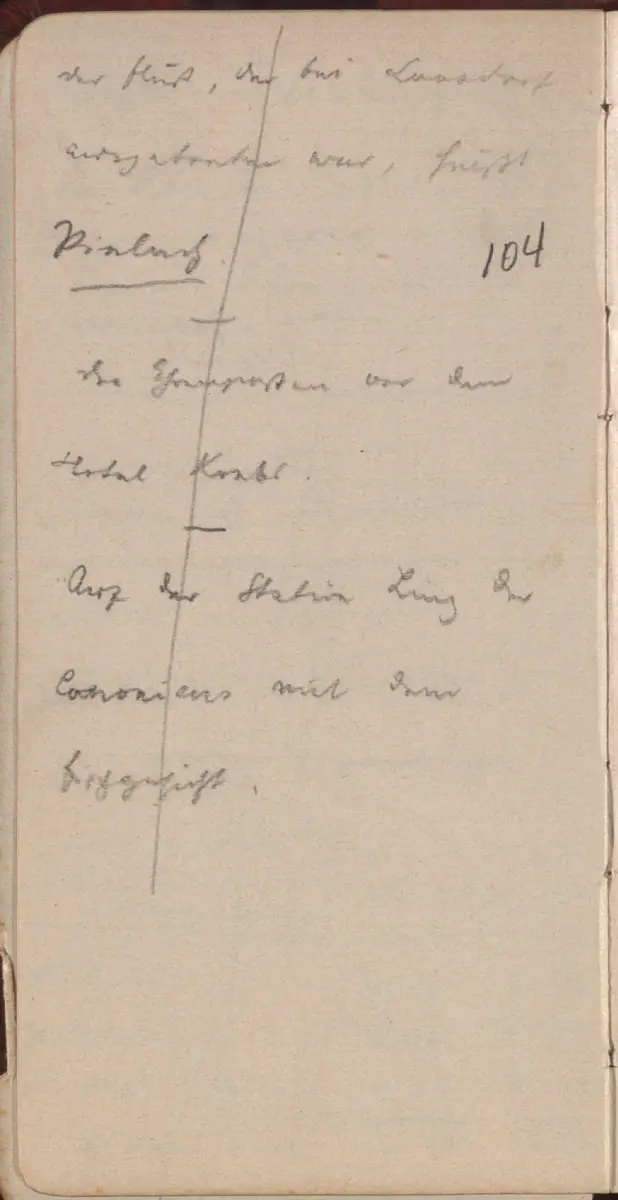 der Fluß, der bei Laasdorf
ausgetreten war, heißt
Pielach.
104
Die Ehrenposten vor dem
Hotel
Auf der Station Linz der
Canonicus mit dem
Fischgesicht.